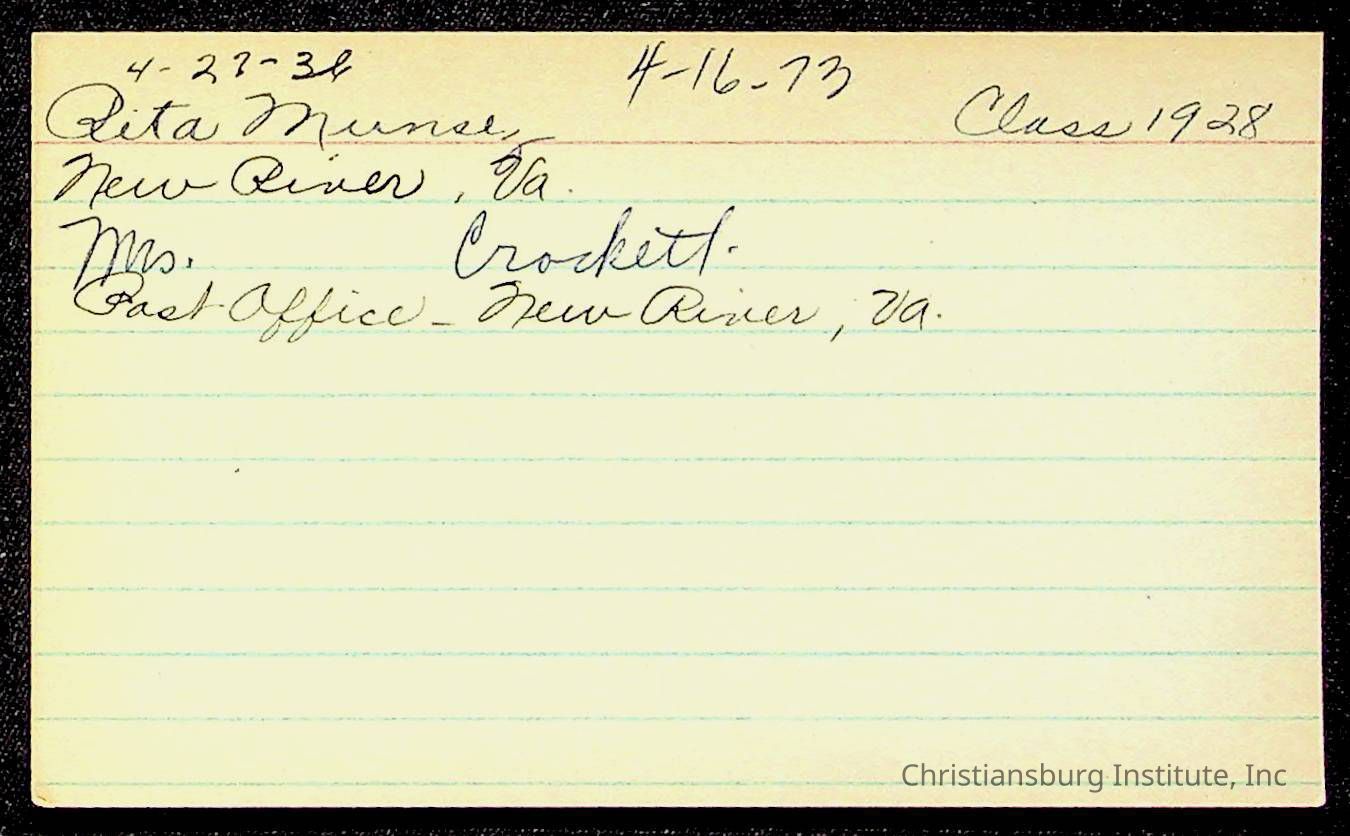 4-27-36 4-16-73
Rita Munse, Class 1928
New River, Va.
Mrs. Crockett.
Post Office - New River, Va.
Christiansburg Institute, Inc